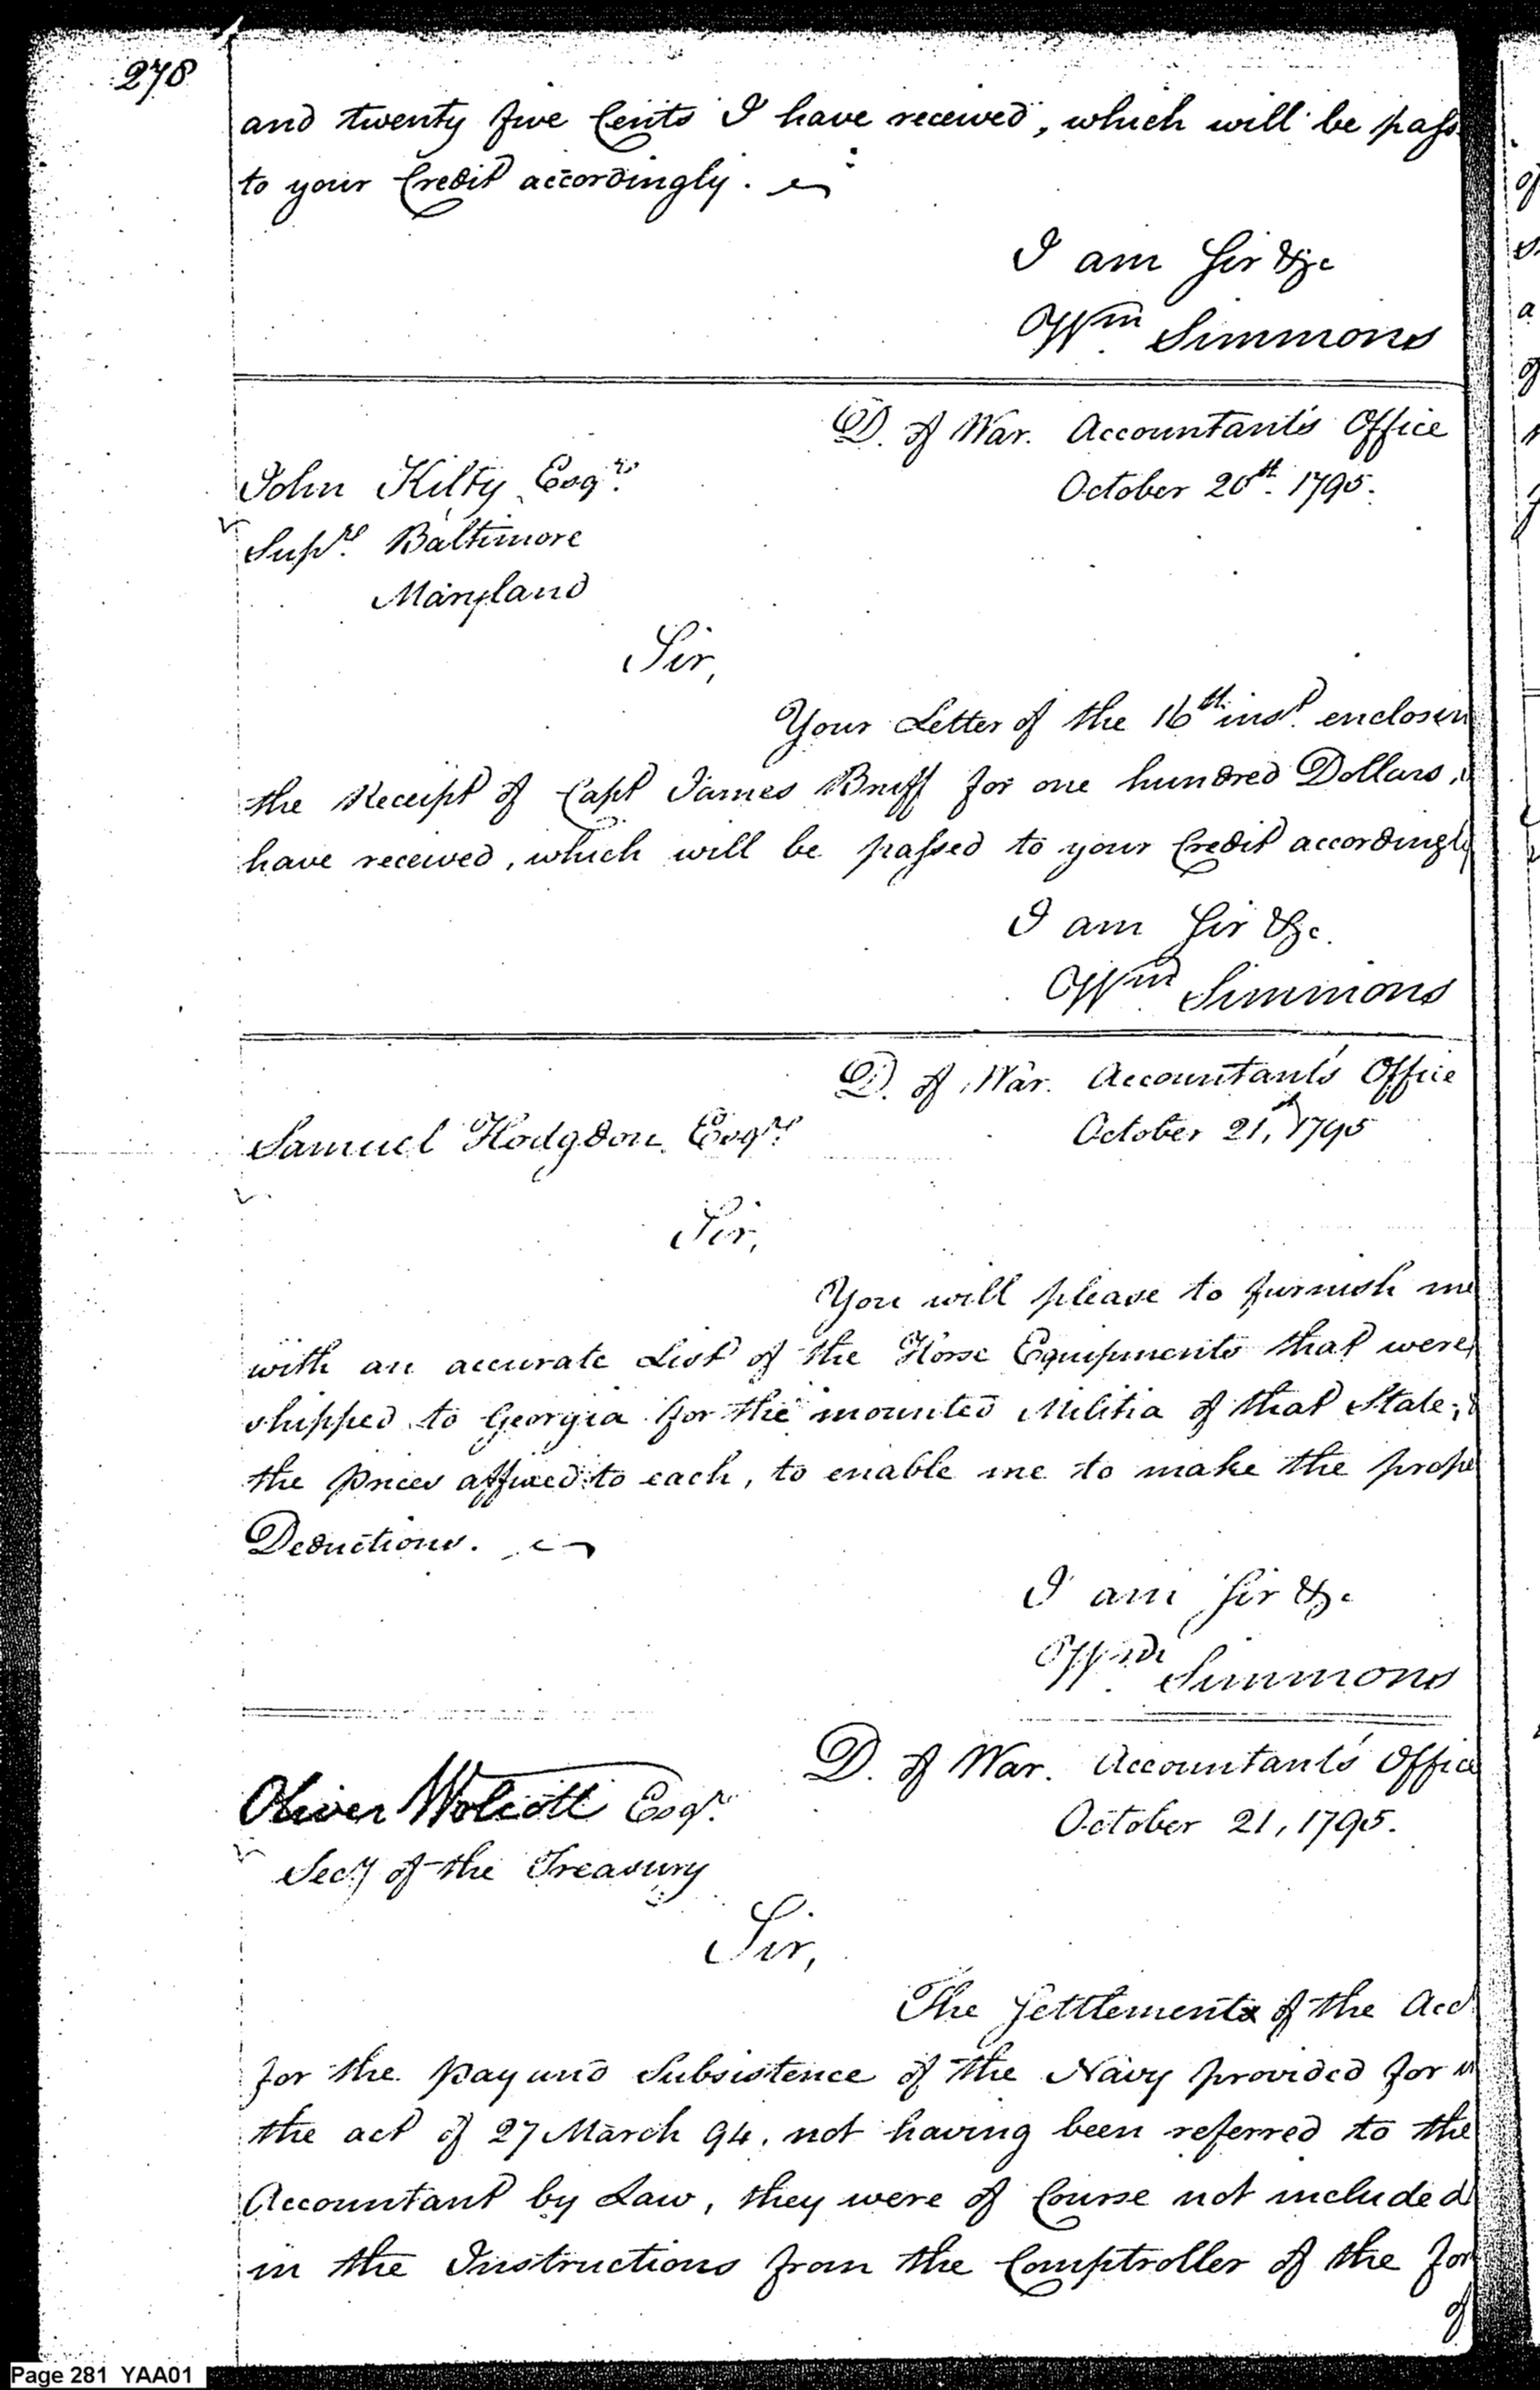 278
and twenty five Cents I have received, which will be pass
to your Credit accordingly.
I am Sir &c
Wm. Simmons
D. of War. Accountant's Office
October 20th. 1795.
John Kilty Esqr.
Supr. Baltimore
Maryland
Sir,
Your Letter of the 16th inst. enclosin
the Receipt of Capt James Bruff for one hundred Dollars,
have received, which will be passed to your Credit accordingly
I am Sir &c.
Wm Simmons
D. of War. Accountant's Office
October 21, 1795
Samuel Hodgdon Esqr.
Sir,
You will please to furnish me
with an accurate List of the Horse Equipments that were
shipped to Georgia for the mounted Militia of that State,
the prices affixed to each, to enable me to make the prope
Deductions.
I am Sir &c
Wm. Simmons
D. of War. Accountant's Office
October 21, 1795.
Oliver Wolcott Esqr.
Secy of the Treasury
Sir,
The Settlements of the Acc
for the pay and Subsistence of the Navy provided for in
the act of 27 March 94, not having been referred to the
Accountant by Law, they were of Course not included
in the Instructions from the Comptroller of the for
of
Page 281 YAA01